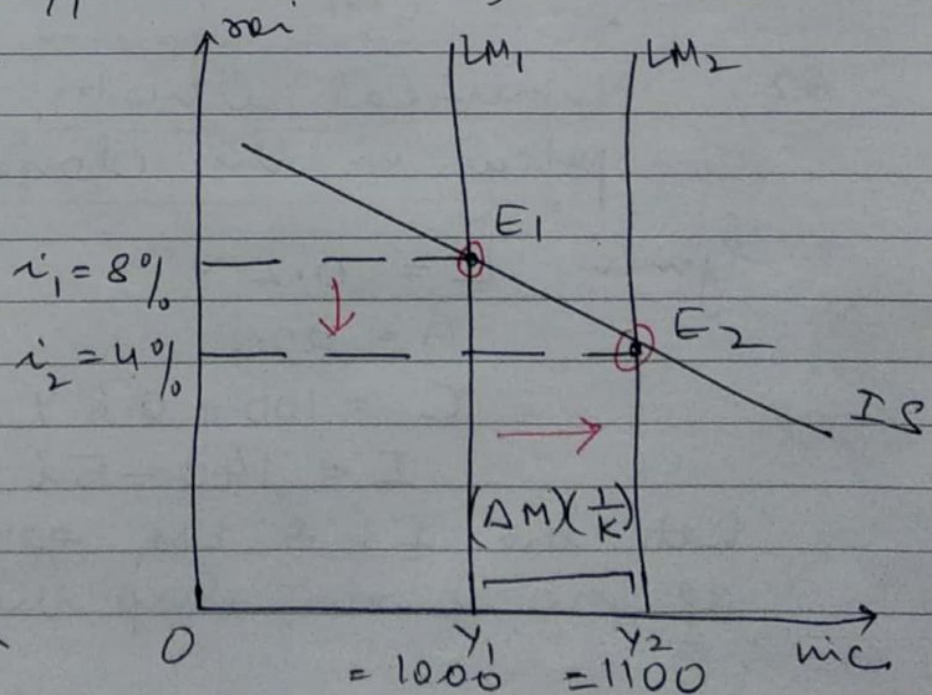 roi
LM₁ LM₂
E₁
i₁ = 8%
E₂
i₂ = 4%
IS
(ΔM)(1/K)
O Y₁ Y₂ inc.
= 1000 = 1100